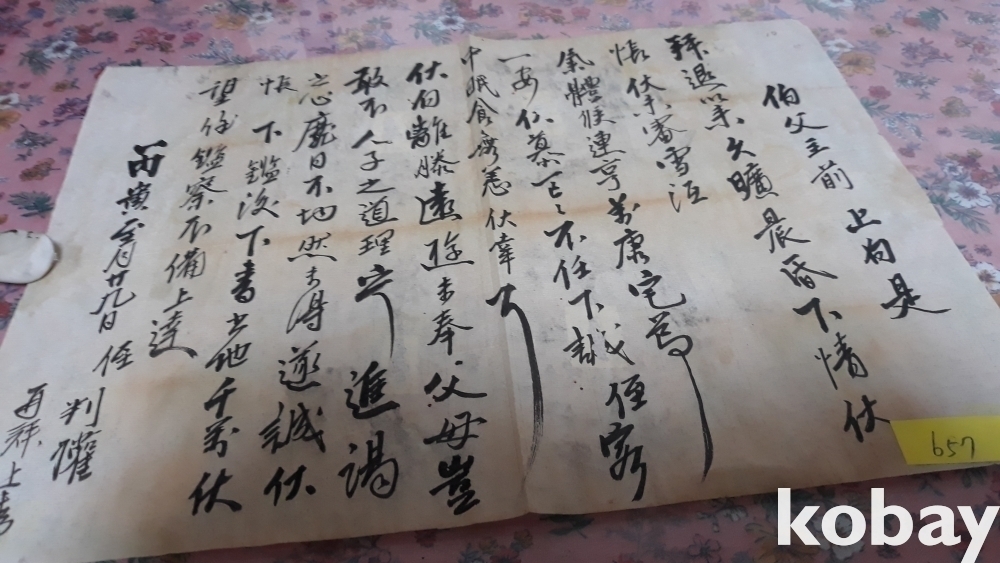 伯父主前 上白是
拜退以來久曠晨昏下情伏
悵伏未審雪沍
氣體候連亨萬康宅節
一安伏慕區〻不任下誠侄客
中眠食無恙伏幸
伏白離膝遠遊未奉父母豈
敢不人子之道理 進謁
之心靡日不切然未得遂誠伏
悵 下鑑後下書之地千萬伏
望侄鑑察不備上達
丙寅至月廿九日 侄
判
再拜上書
657
kobay